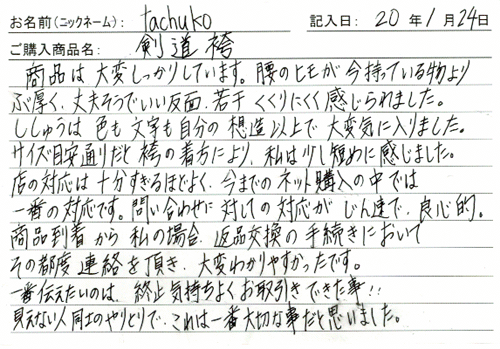 お名前(ニックネーム): tachuko 記入日: 20 年 1 月 24日
ご購入商品名: 剣道 袴
商品は大変しっかりしています。腰のヒモが今持っている物より
ぶ厚く、丈夫そうでいい反面、若干くくりにくく感じられました。
ししゅうは色も文字も自分の想造以上で大変気に入りました。
サイズ目安通りだと袴の着方により、私は少し短めに感じました。
店の対応は十分すぎるほどよく、今までのネット購入の中では
一番の対応です。問い合わせに対しての対応がじん速で、良心的。
商品到着から私の場合、返品交換の手続きにおいて
その都度連絡を頂き、大変わかりやすかったです。
一番伝えたいのは、終止気持ちよくお取引きできた事!!
見えない人同士のやりとりで、これは一番大切な事だと思いました。